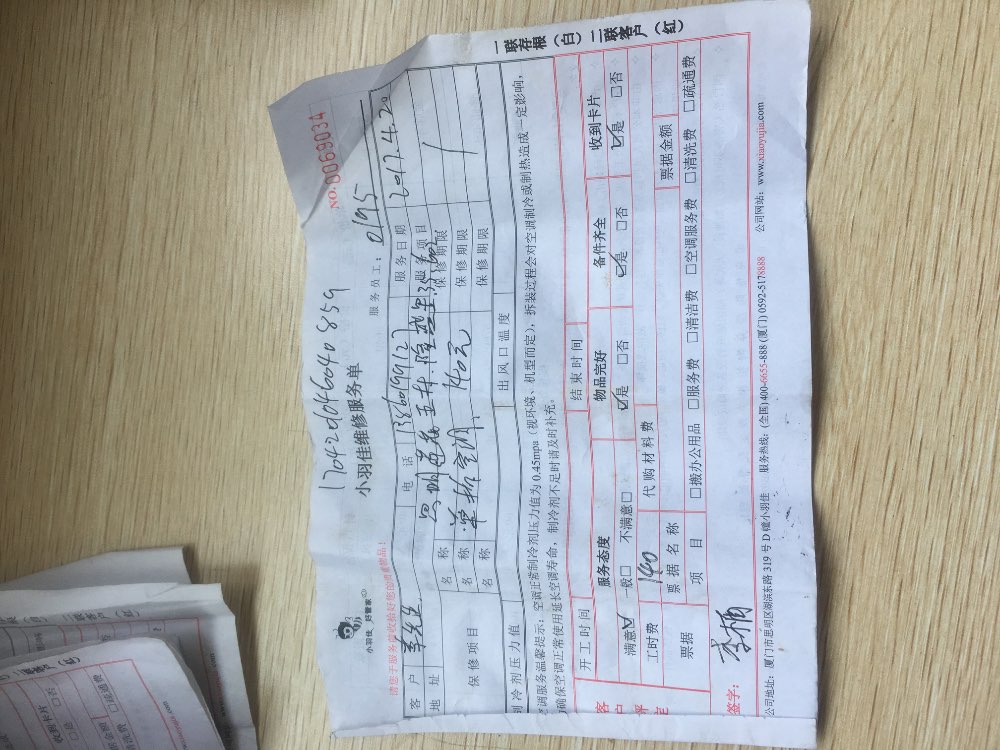 17042d04604085g
NO. 0069034
小羽佳维修服务单
小羽佳 好管家
服务员工: 0195
请您于服务前收检好您的贵重物品!
客户 李先生 电话 13860199127 服务日期 2017.4.2
地址 服务项目
保修项目
名称 单拆空调 140元 保修期限
名称 保修期限
名称 保修期限
制冷剂压力值 出风口温度
空调服务温馨提示: 空调正常制冷剂压力值为0.45mpa(视环境、机型而定),拆装过程会对空调制冷或制热造成一定影响,
确保空调正常使用延长空调寿命,制冷剂不足时请及时补充。
开工时间 结束时间
客户评定
服务态度 物品完好 备件齐全 收到卡片
满意☑ 一般□ 不满意□ ☑是 □否 ☑是 □否 ☑是 □否
工时费 140 代购材料费
票据 票据名称 票据金额
项目 □搬办公用品 □服务费 □清洁费 □空调服务费 □清洗费 □疏通费
签字:
公司地址: 厦门市思明区湖滨东路319号D幢小羽佳 服务热线: (全国)400-6655-888 (厦门) 0592-5178888 公司网站: www.xiaoyujia.com
一联存根(白) 二联客户(红)